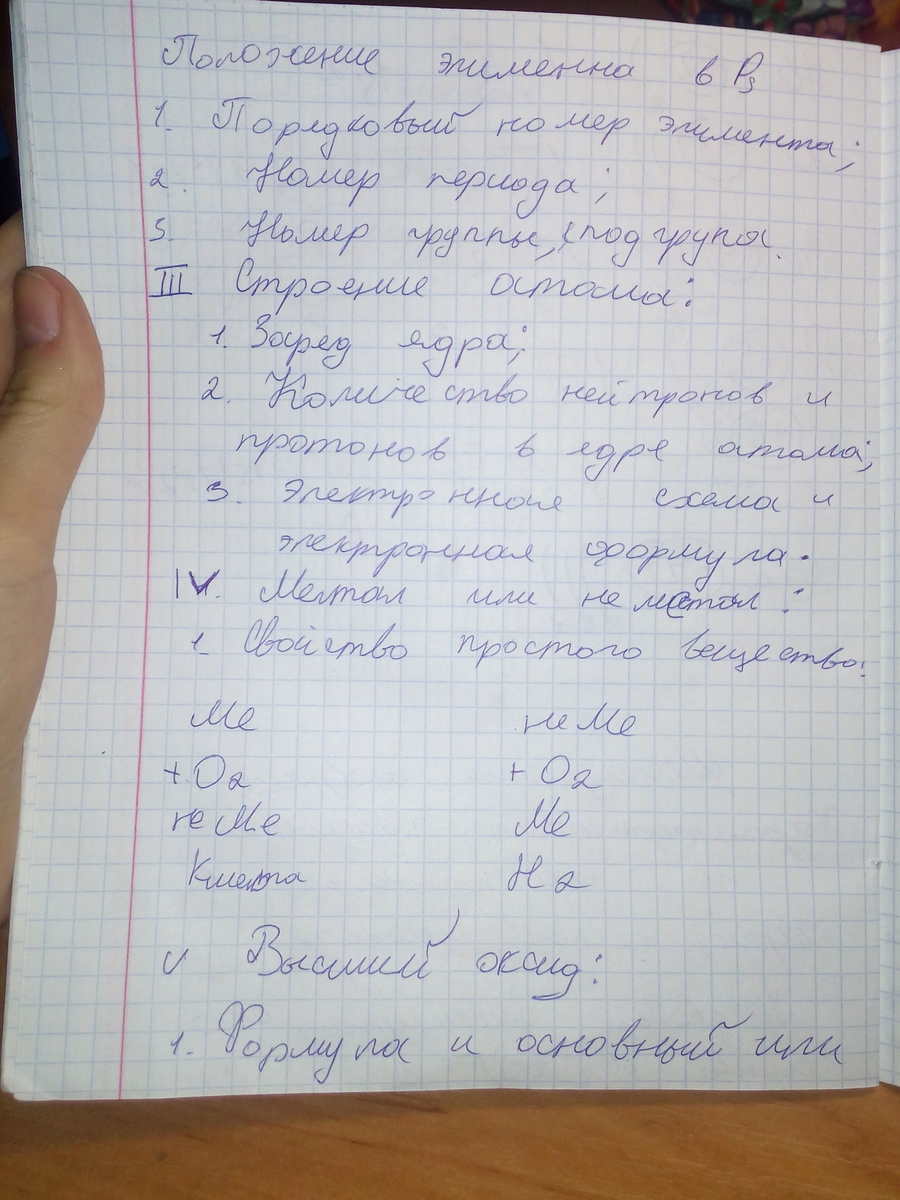 Положение элименна в Ps
1. Порядковый номер элимента;
2. Номер периода;
3. Номер группы, подгрупа.
III Строение атома:
1. Заряд ядра;
2. Количество нейтронов и
протонов в ядре атома;
3. Электронная схема и
электронная формула.
IV. Металл или неметал:
1. Свойство простого вещества:
Ме неМе
+O2 +O2
неМе Ме
Кислота H2
V Высший оксид:
1. Формула и основный или